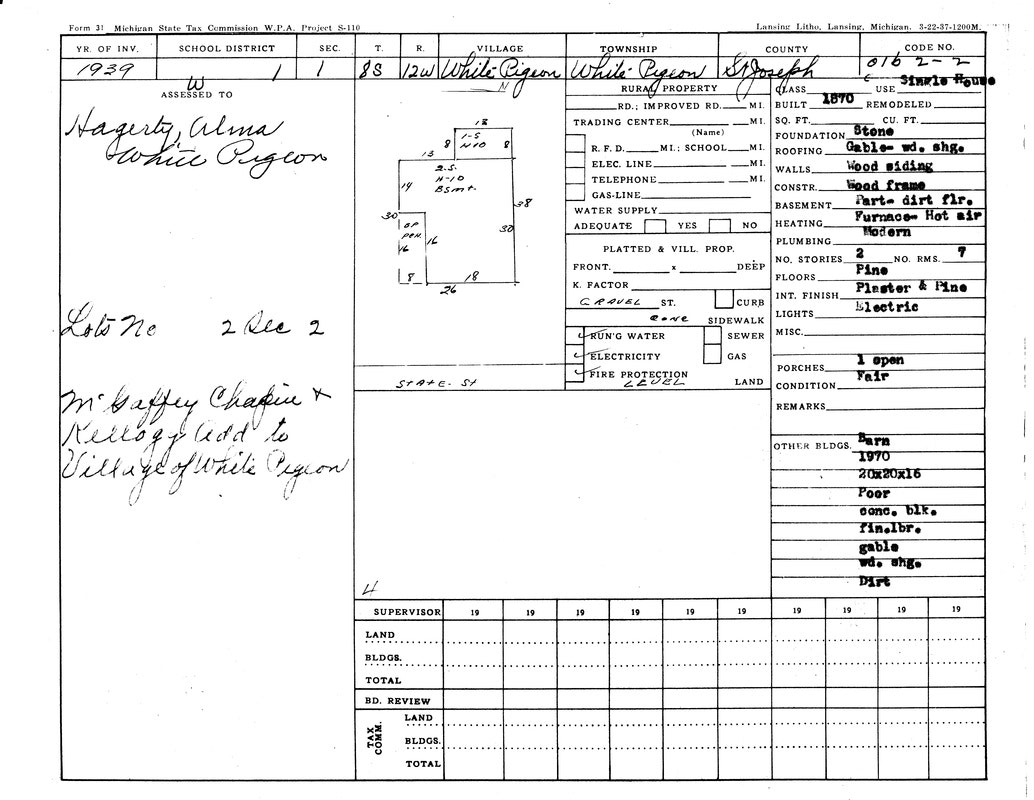 Form 31 Michigan State Tax Commission W.P.A. Project S-110
Lansing Litho, Lansing, Michigan. 3-22-37-1200M.
YR. OF INV. SCHOOL DISTRICT SEC. T. R. VILLAGE TOWNSHIP COUNTY CODE NO.
1939 1 1 8S 12W White Pigeon White Pigeon St Joseph 016 2-2
W
ASSESSED TO
Hagerty, Alma
White Pigeon
Lots No 2 Sec 2
McGaffey Chapin &
Kellogg Add to
Village of White Pigeon
N
18
8 1-S 8
N10
13
2.S.
H-10
Bsmt.
14
38
30
OP
PCH.
16 16
30
8 18
26
STATE. ST
4
RURAL PROPERTY
RD.; IMPROVED RD. MI.
TRADING CENTER MI.
(Name)
R. F. D. MI.; SCHOOL MI.
ELEC. LINE MI.
TELEPHONE MI.
GAS-LINE
WATER SUPPLY
ADEQUATE YES NO
PLATTED & VILL. PROP.
FRONT. x DEEP
K. FACTOR
GRAVEL ST. CURB
CONC SIDEWALK
RUN'G WATER SEWER
ELECTRICITY GAS
FIRE PROTECTION
LEVEL LAND
CLASS USE Single House
BUILT 1870 REMODELED
SQ. FT. CU. FT.
FOUNDATION Stone
ROOFING Gable- wd. shg.
WALLS Wood siding
CONSTR. Wood frame
BASEMENT Part- dirt flr.
HEATING Furnace- Hot air
PLUMBING Modern
NO. STORIES 2 NO. RMS. 7
FLOORS Pine
INT. FINISH Plaster & Pine
LIGHTS Electric
MISC.
PORCHES 1 open
CONDITION Fair
REMARKS
OTHER BLDGS. Barn
1970
20x20x16
Poor
conc. blk.
fin.lbr.
gable
wd. shg.
Dirt
SUPERVISOR 19 19 19 19 19 19 19 19 19 19
LAND
BLDGS.
TOTAL
BD. REVIEW
TAX COMM.
LAND
BLDGS.
TOTAL